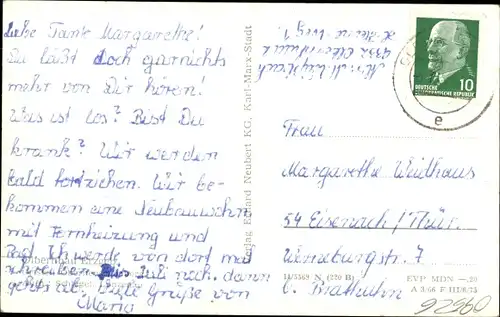 Liebe Tante Margarethe!
Du läßt doch garnichts
mehr von Dir hören!
Was ist los? Bist Du
krank? Wir werden
bald fortziehen. Wir be-
kommen eine Neubauwohn
mit Fernheizung und
Bad. Ich werde von dort mal
schreiben. Juli noch, dann
geht's ab. Viele Grüße von
Maria
Verlag Erhard Neubert KG, Karl-Marx-Stadt
DEUTSCHE
DEMOKRATISCHE REPUBLIK
10
e
Frau
Margarethe Weilhaus
59 Eisenach/Thür.
Werneburgstr. 7
b. Brathuhn
II/5569 N (220 B)
EVP MDN —,20
A 3/66 F III/6/73
09626